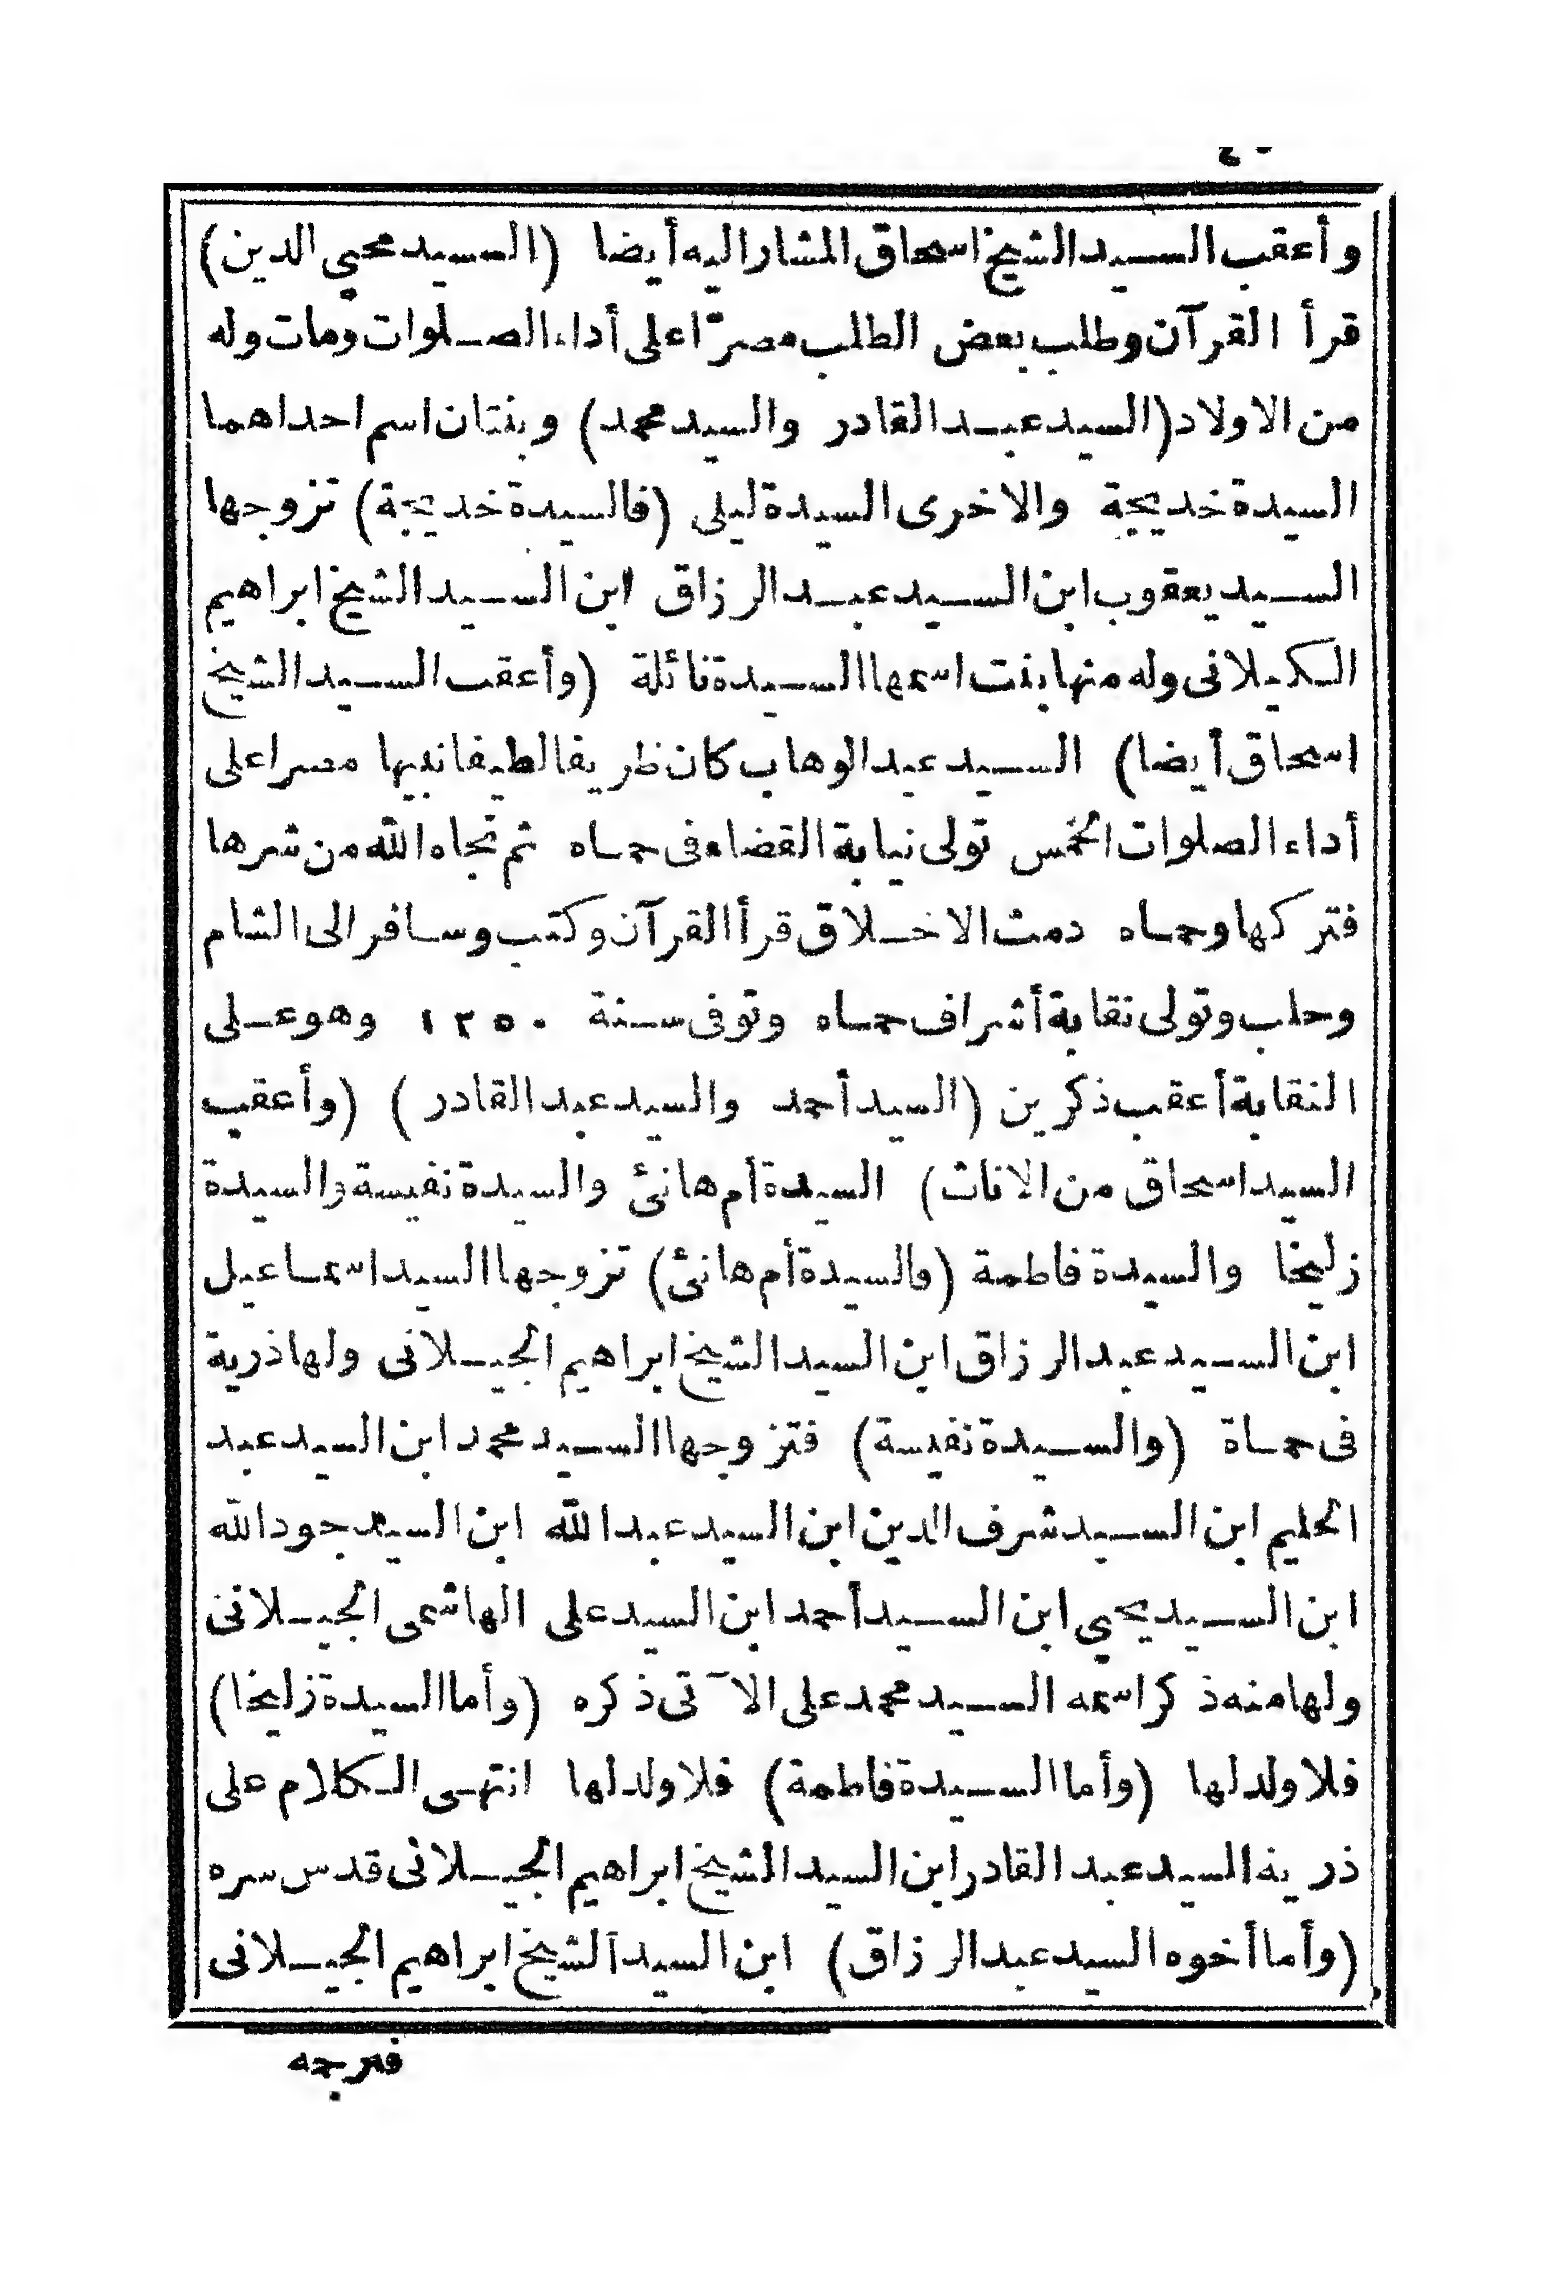 ٤٠
وأعقب السيد الشيخ اسحاق المشار اليه أيضا (السيد محيي الدين)
قرأ القرآن وطلب بعض الطلب مصرّا على أداء الصلوات ومات وله
من الاولاد (السيد عبد القادر والسيد محمد) وبنتان اسم احداهما
السيدة خديجة والاخرى السيدة ليلى (فالسيدة خديجة) تزوجها
السيد يعقوب ابن السيد عبد الرزاق ابن السيد الشيخ ابراهيم
الكيلانى وله منها بنت اسمها السيدة نائلة (وأعقب السيد الشيخ
اسحاق أيضا) السيد عبد الوهاب كان ظريفا لطيفا نبيها مصرا على
أداء الصلوات الخمس تولى نيابة القضاء فى حماه ثم نجاه الله من شرها
فتركها وحماه دمث الاخلاق قرأ القرآن وكتب وسافر الى الشام
وحلب وتولى نقابة أشراف حماه وتوفى سنة ١٢٥٠ وهو على
النقابة أعقب ذكرين (السيد أحمد والسيد عبد القادر) (وأعقب
السيد اسحاق من الاناث) السيدة أم هانئ والسيدة نفيسة والسيدة
زليخا والسيدة فاطمة (والسيدة أم هانئ) تزوجها السيد اسماعيل
ابن السيد عبد الرزاق ابن السيد الشيخ ابراهيم الجيلانى ولها ذرية
فى حماة (والسيدة نفيسة) فتزوجها السيد محمد ابن السيد عبد
الحليم ابن السيد شرف الدين ابن السيد عبد الله ابن السيد جود الله
ابن السيد يحيي ابن السيد أحمد ابن السيد على الهاشمى الجيلانى
ولها منه ذكر اسمه السيد محمد على الآتى ذكره (وأما السيدة زليخا)
فلا ولد لها (وأما السيدة فاطمة) فلا ولد لها انتهى الكلام على
ذرية السيد عبد القادر ابن السيد الشيخ ابراهيم الجيلانى قدس سره
(وأما أخوه السيد عبد الرزاق) ابن السيد الشيخ ابراهيم الجيلانى
فترجمه